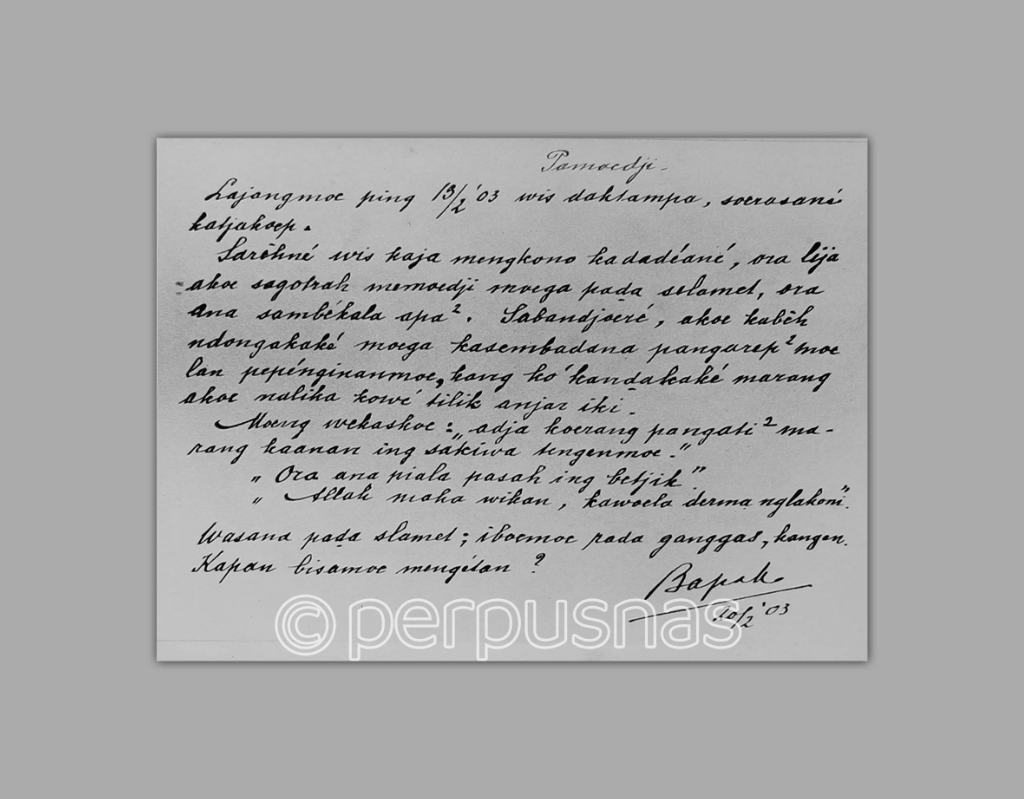 Pamoedji.
Lajangmoe ping 13/2 '03 wis daktampa, soerasané
katjakoep.
Sarèhné wis kaja mengkono kadadéané, ora lija
akoe sagotrah memoedji moega pada slamet, ora
ana sambékala apa². Sabandjoeré, akoe kabèh
ndongakaké moega kasembadana pangarep²moe
lan pepénginanmoe, kang ko' kandakaké marang
akoe nalika kowé tilik anjar iki.
Moeng wekaskoe: „adja koerang pangati² ma-
rang kaanan ing sakiwa tengenmoe."
„Ora ana piala pasah ing betjik"
„Allah maha wikan, kawoela derma nglakoni".
Wasana pada slamet; iboemoe rada ganggas, kangen.
Kapan bisamoe mengétan?
Bapak
/2 '03
©perpusnas